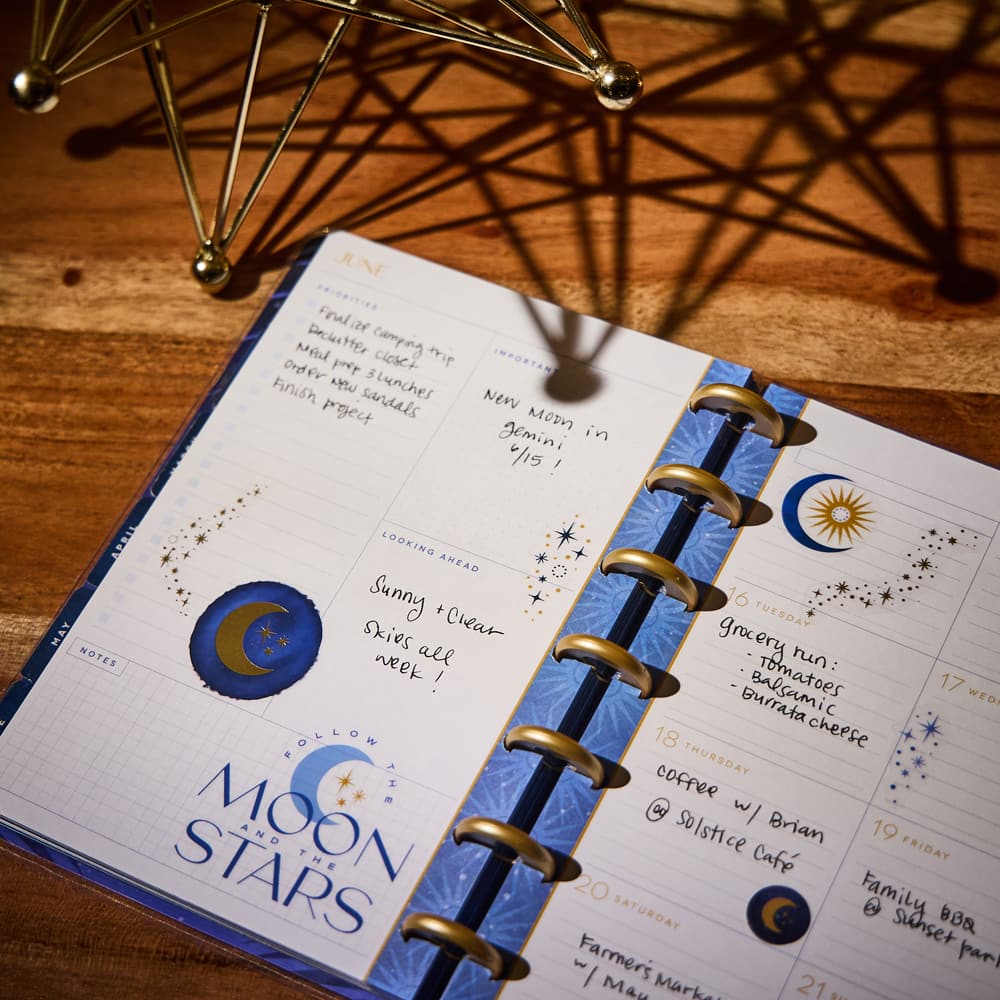 JUNE
PRIORITIES
Finalize camping trip
Declutter closet
Meal prep 3 lunches
order new sandals
Finish project
IMPORTANT
New Moon in
gemini
6/15 !
LOOKING AHEAD
Sunny + Clear
skies all
week !
APRIL
MAY
NOTES
FOLLOW THE
MOON
AND THE
STARS
16 TUESDAY
grocery run:
- Tomatoes
- Balsamic
- Burrata cheese
17 WED
18 THURSDAY
coffee w/ Brian
@ Solstice Café
19 FRIDAY
Family BBQ
@ Sunset par
20 SATURDAY
Farmer's Marke
w/ May
21